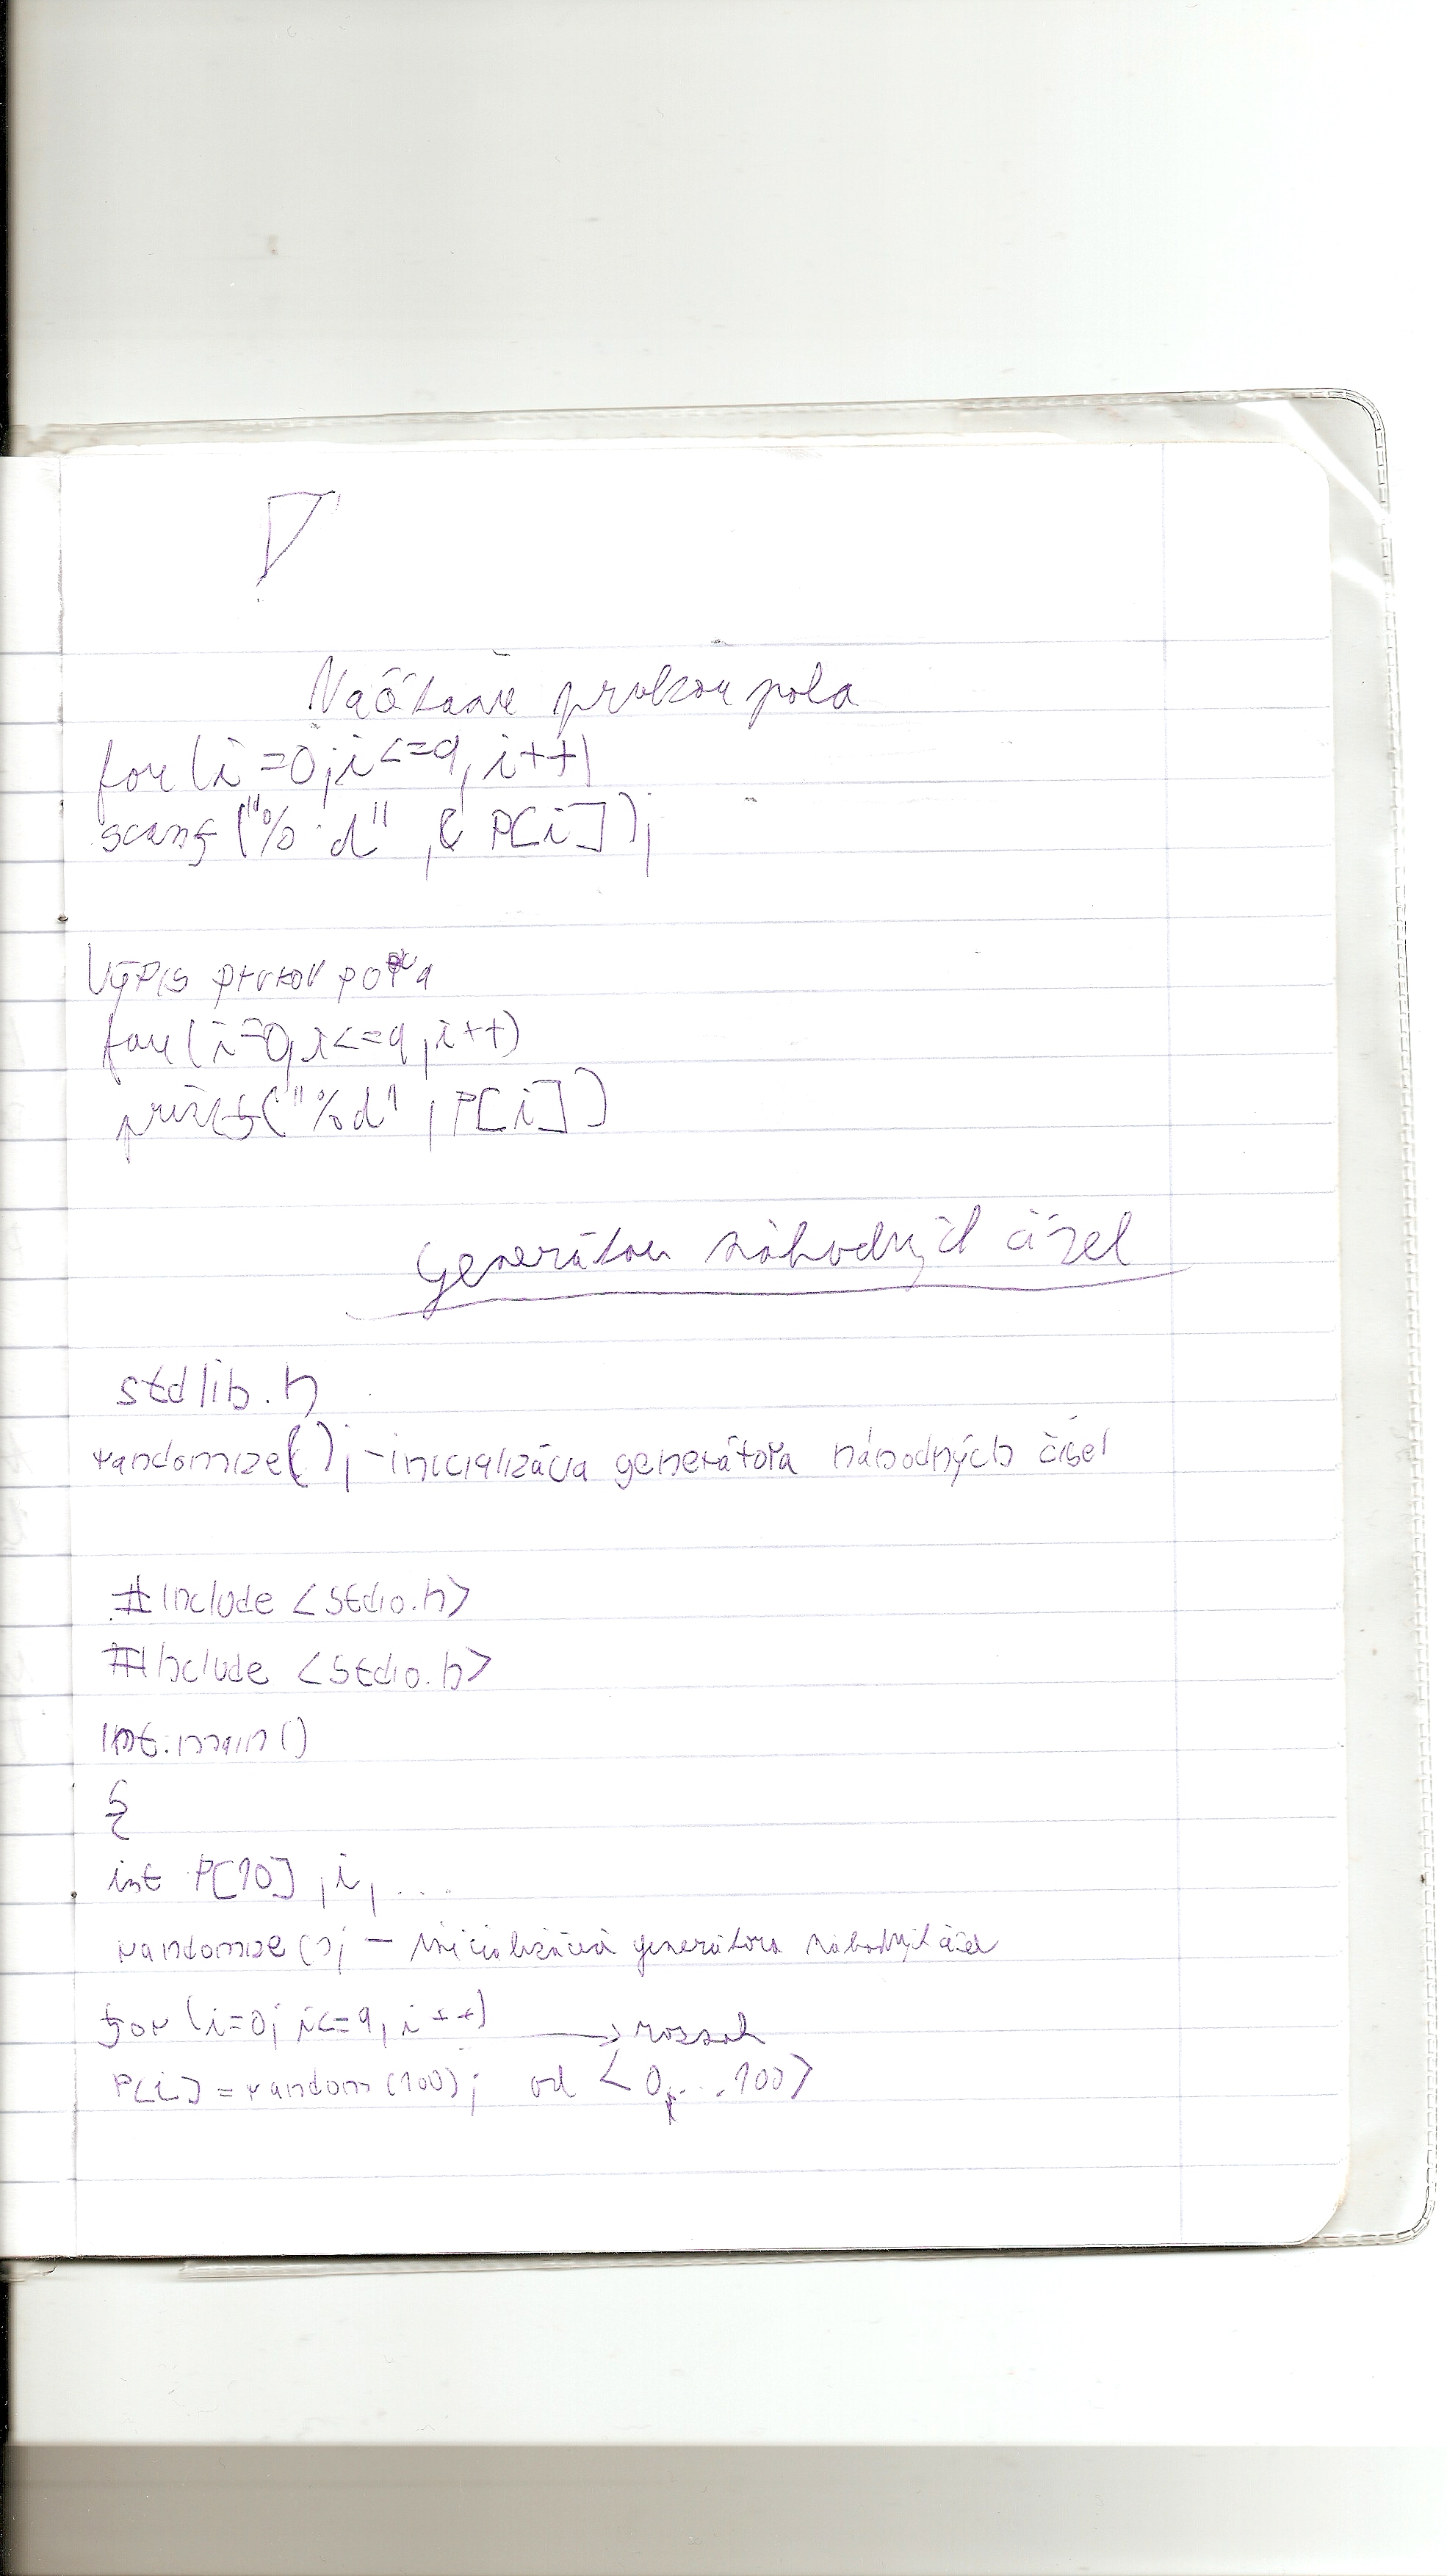 Načítanie prvkov pola
for (i=0;i<=9,i++)
scanf ("%d" ,& P[i]);
Výpis prvkov pola
for (i=0,i<=9,i++)
printf("%d" ,P[i])
Generátor náhodných čísel
stdlib.h
randomize(); -inicializácia generátora náhodných čísel
#include <stdio.h>
#include <stdio.h>
int main()
{
int P[10] ,i, ....
randomize(); - inicializácia generátora náhodných čísel
for (i=0; i<=9, i++) → rozsah
P[i] = random(100); od <0,...100>